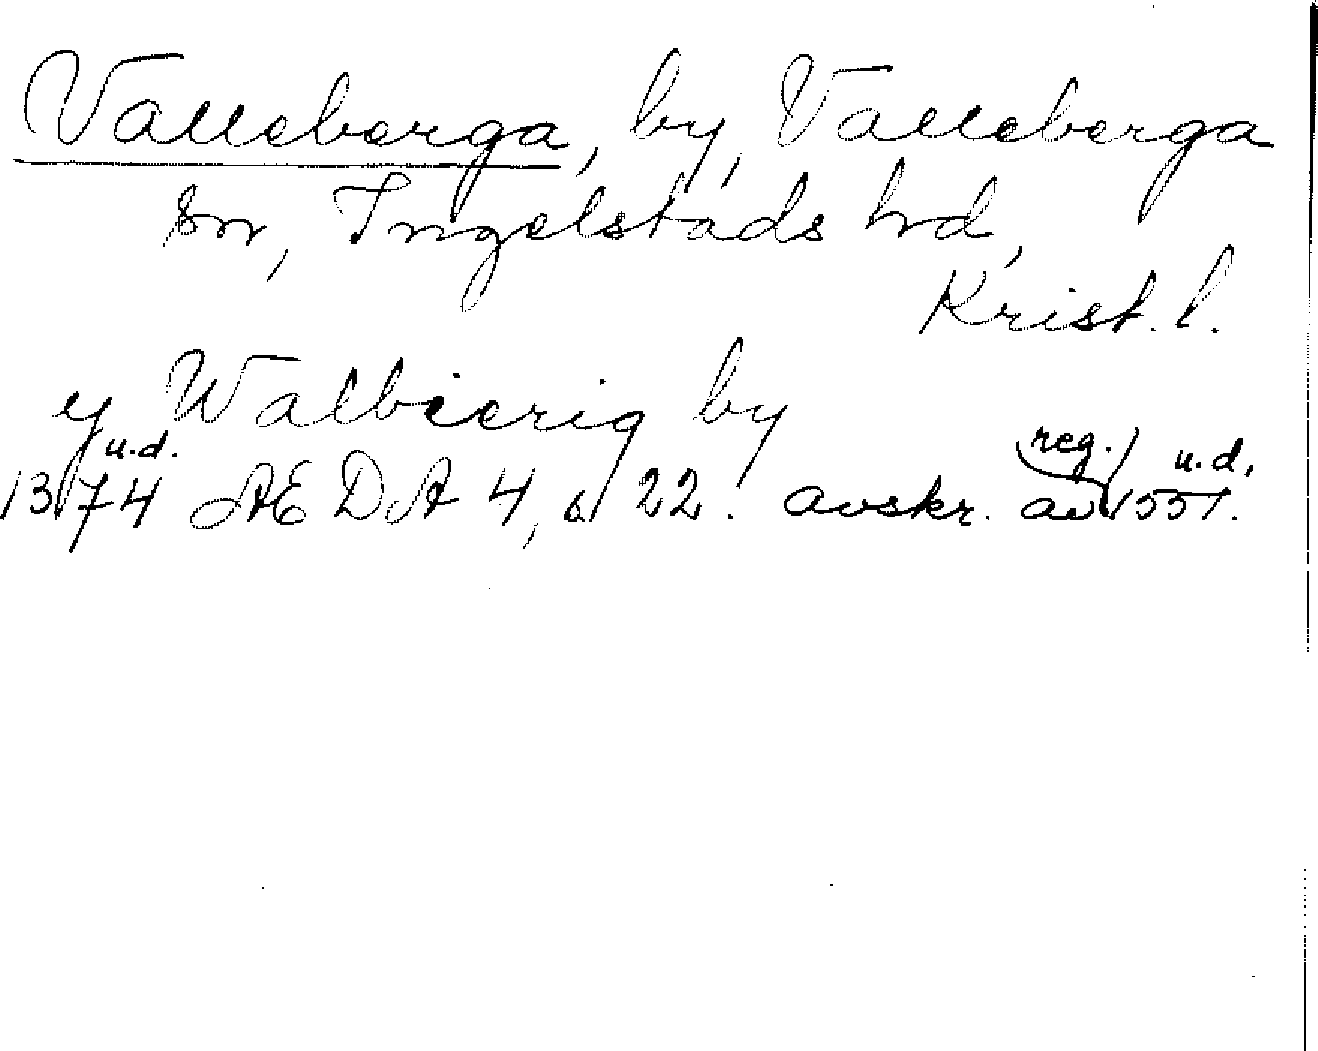 Valleberga, by, Valleberga
sn, Ingelstads hd,
Krist. l.
y Walbierig by
1374 u.d. AEDA 4, s 22. avskr. av reg. 1551. u.d.